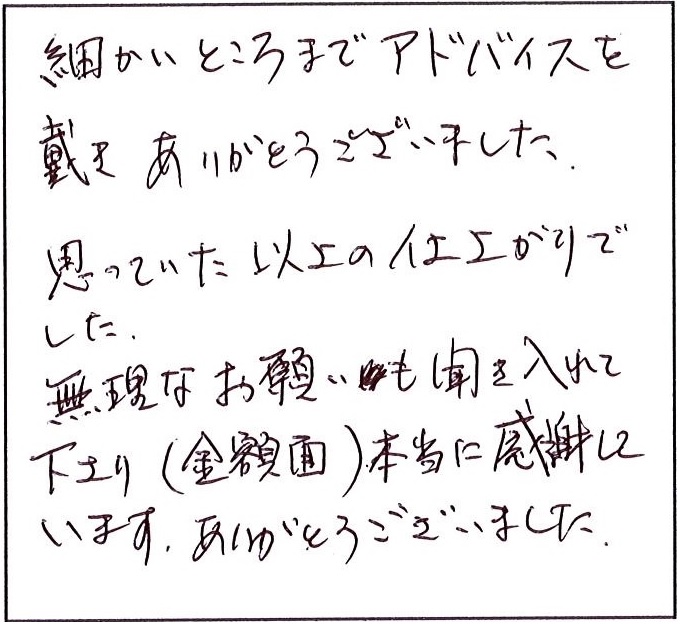 細かいところまでアドバイスを
戴き ありがとうございました.
思っていた以上の仕上がりで
した.
無理なお願いも聞き入れて
下さり(金額面)本当に感謝して
います. ありがとうございました.